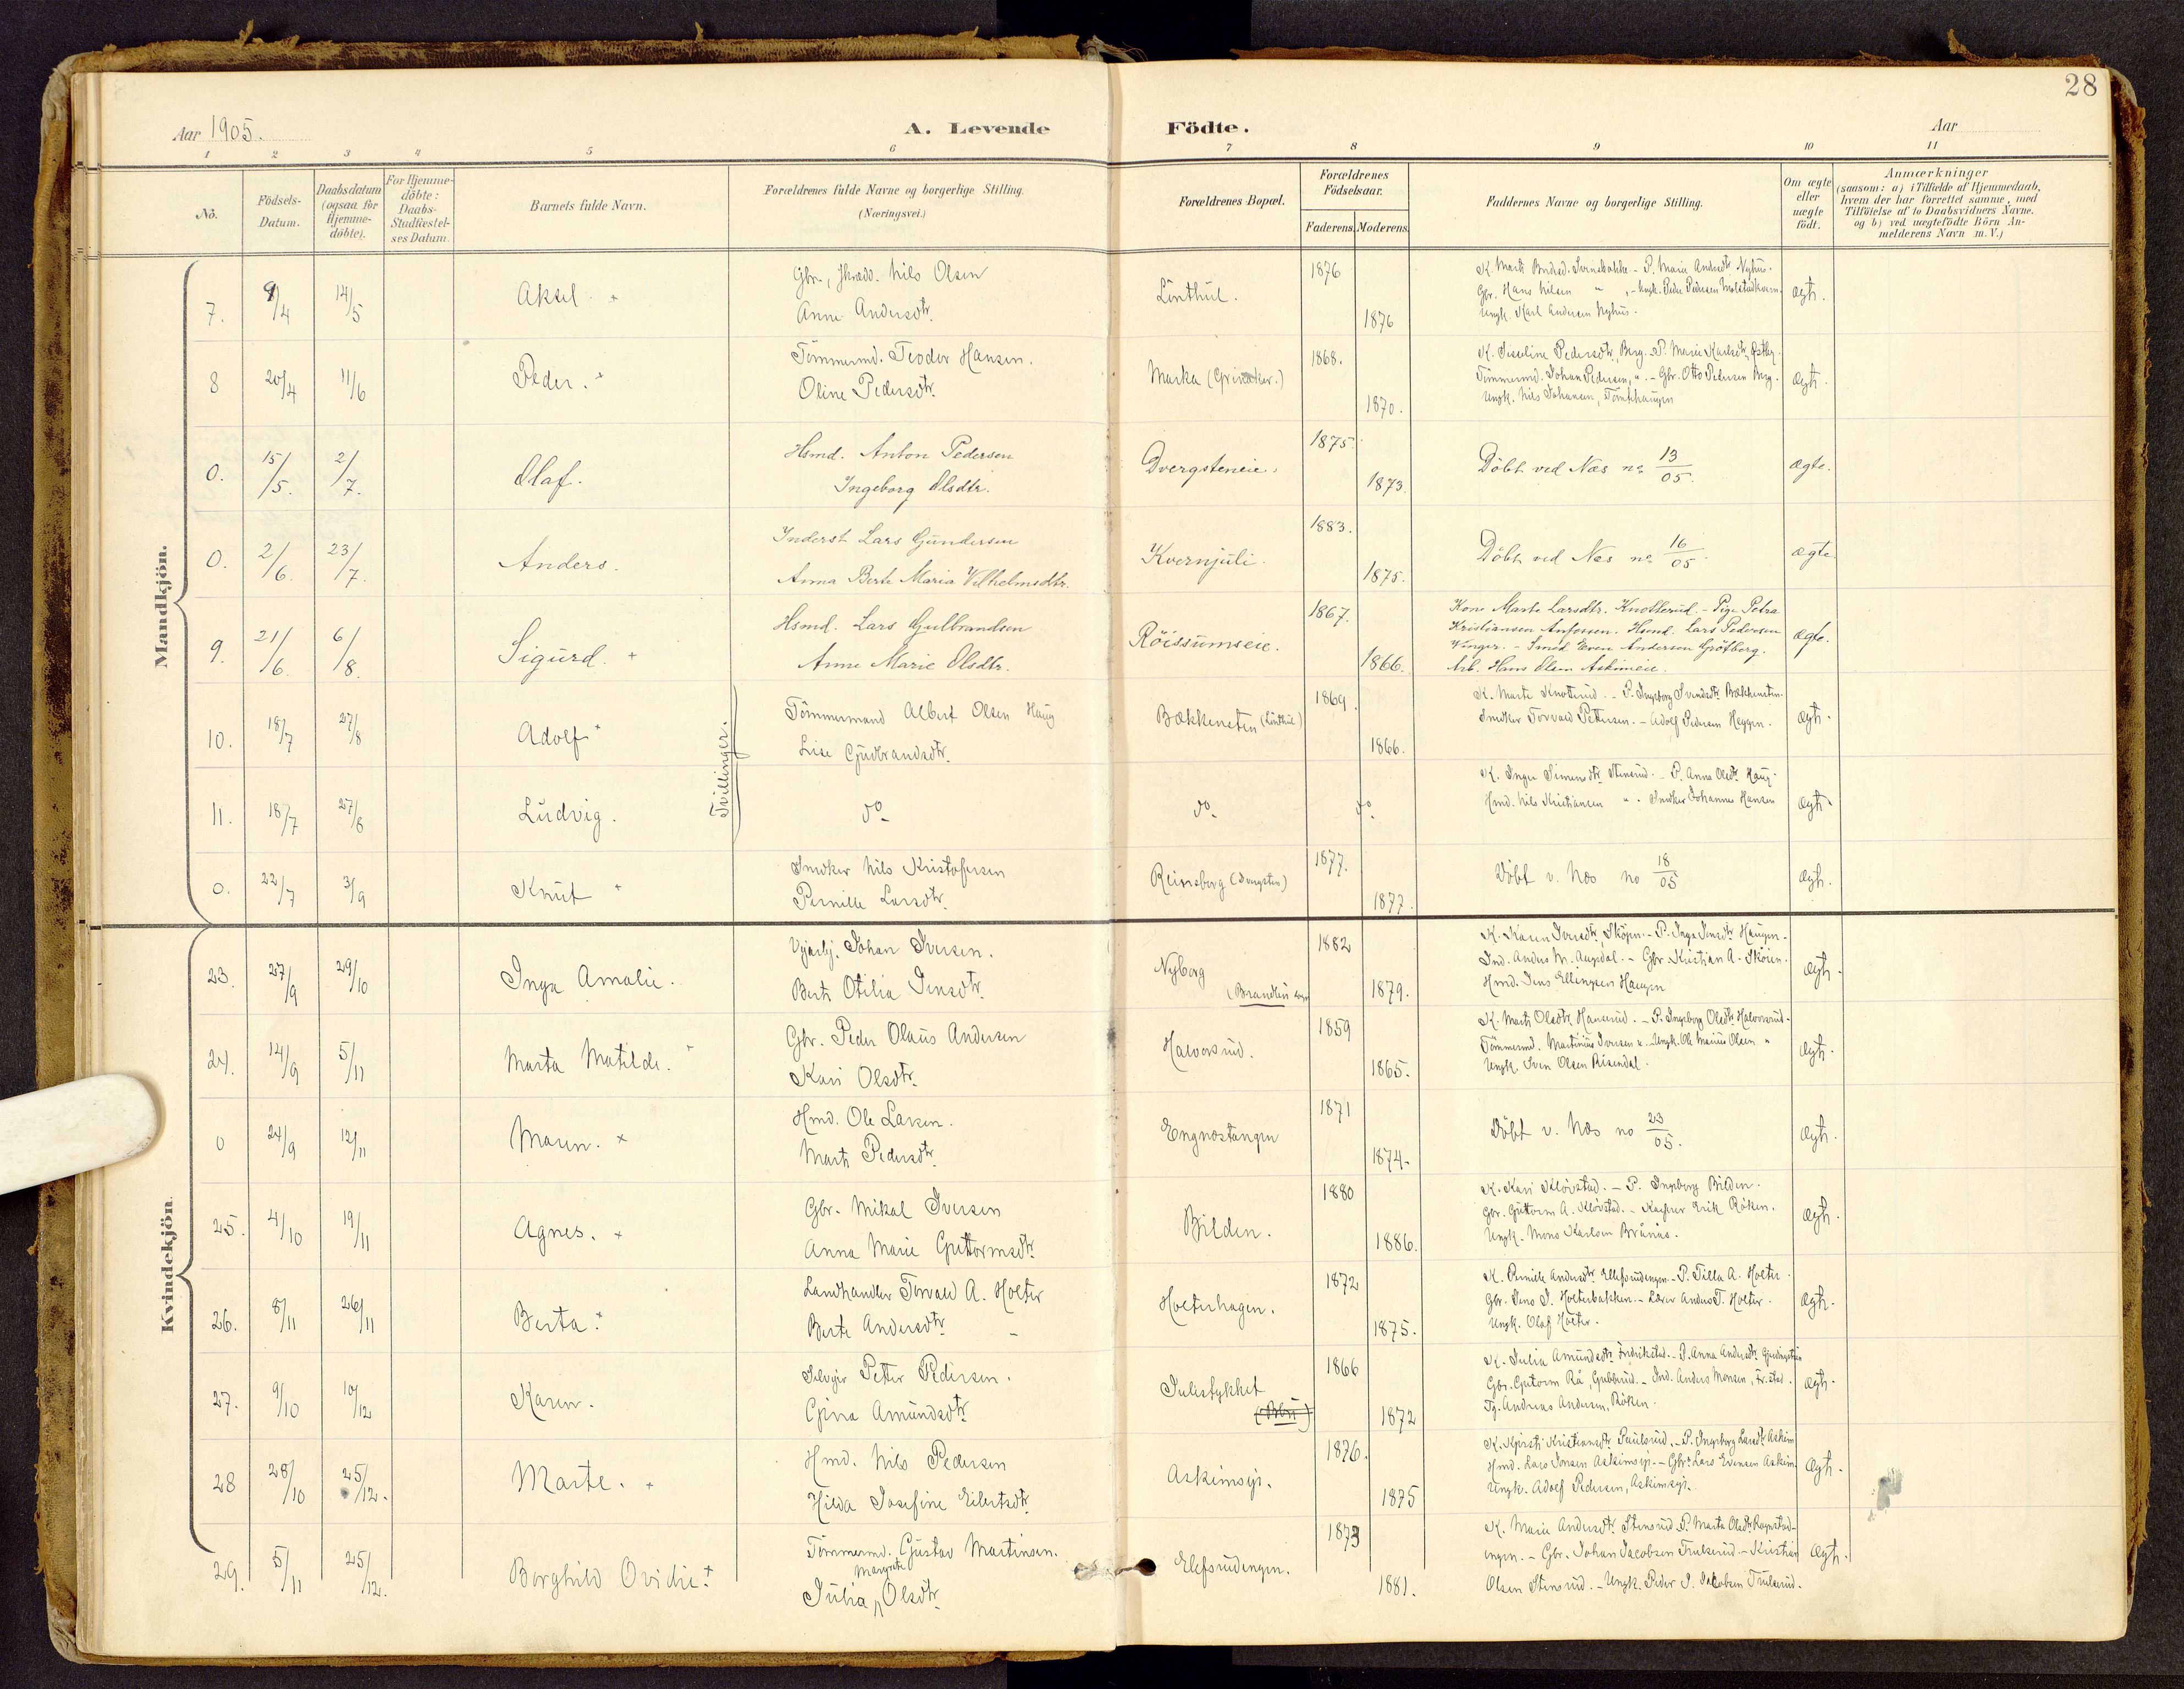 28
Aar 1905.
A. Levende Födte.
Aar
1 2 3 4 5 6 7 8 9 10 11
No.
Födsels-Datum.
Daabsdatum (ogsaa for Hjemme-döbte).
For Hjemme-döbte: Daabs-Stadfæstel-ses Datum.
Barnets fulde Navn.
Forældrenes fulde Navne og borgerlige Stilling.
(Næringsvei.)
Forældrenes Bopæl.
Forældrenes Födselsaar.
Faderens. Moderens.
Faddernes Navne og borgerlige Stilling.
Om ægte eller uægte födt.
Anmærkninger
(saasom: a) i Tilfælde af Hjemmedaab, hvem der har forrettet samme, med Tilföielse af to Daabsvidners Navne, og b) ved uægtefödte Börn An-melderens Navn m. V.)
Mandkjön.
7. 9/4 14/5 Aksel. Nils Olsen Lönthul. 1876
Anne Andersdtr. 1876
Gbr. Hans Nilsen
Ungk. Karl Andersen Nyhus.
ægte.
8 20/4 11/6 Peder. Tömmermd. Teodor Hansen. Marka 1868.
Oline Pedersdtr. 1870.
Tömmermd. Johan Pedersen, " - Gbr. Otto Pedersen Berg.
Ungk. Nils Johansen,
ægte.
0. 15/5. 2/7. Olaf. Hsmd. Anton Pedersen Dvergsteneie. 1875
Ingeborg Olsdtr. 1873.
Döbt ved Næs no 13/05. ægte.
0. 2/6. 23/7. Anders. Inderst Lars Gundersen Kvernjuli. 1883.
Anna Berte Maria Vilhelmsdtr. 1875.
Döbt ved Næs no 16/05. ægte
9. 21/6 6/8. Sigurd. Hsmd. Lars Gulbrandsen Röissumseie. 1867.
Anne Marie Olsdtr. 1866.
Kone Marte Larsdtr. Knotterud. - Pige Petra
Kristiansen Hsmd. Lars Pedersen
Smed Even Andersen Grötberg.
Arb. Hans Olsen Askimeie.
ægte.
10. 18/7 27/8 Adolf Tömmermand Albert Olsen Haug Bækkeneten (Lönthul) 1869.
Lise Gudbrandsdtr. 1866.
K. Marte Knoterud. - P. Ingeborg Svendsdtr. Bækkeneten.
Snedker Torvald Pettersen. - Adolf Pedersen Heggen.
ægte.
Tvillinger.
11. 18/7 27/8 Ludvig. do do do
K. Inger Simensdtr. Stensrud. - P. Anna Olsdtr. Haug.
Hmd. Nils Kristiansen " - Snedker Johannes Hansen
ægte.
0. 22/7 3/9 Knut Snedker Nils Kristofersen Reinsberg 1877.
Pernille Larsdtr. 1877.
Döbt v. Næs no 18/05 ægte.
Kvindekjön
23. 27/9 29/10 Inga Amalie. Johan Iversen. Nyborg 1882
Berte Otilia Jensdtr. 1879.
K. Karen Iversdtr., Skögen. - P. Inga Jensdtr. Haugen.
Gbr. Kristian A. Skoien.
Hmd. Jens Ellingsen Haugen
ægte.
24. 14/9 5/11 Marta Matilde. Gbr. Peder Olaus Andersen Halvorsrud. 1859
Kari Olsdtr. 1865.
K. Marte Olsdtr. Hansrud. - P. Ingeborg Olsdtr. Halvorsrud.
Tömmermd. Martinius Iversen " - Ungk. Ole Marius Olsen "
Ungk. Sven Olsen Risendal.
ægte.
0 24/9 12/11 Maren. Hmd. Ole Larsen. Engnæstangen 1871
Marte Pedersdtr. 1874.
Döbt v. Næs no 23/05. ægte.
25. 4/10 19/11 Agnes. Gbr. Mikal Iversen Bilden. 1880
Anna Marie Guttormsdtr. 1886.
K. Kari Klövstad. - P. Ingeborg Bilden.
Gbr. Guttorm A. Klövstad. - Erik Röken.
Ungk. Mons Karlsen Brünäs.
ægte.
26. 8/11 26/11 Berta. Landhandler Torvald A. Holter Holterhagen. 1872
Berte Andersdtr. - 1875.
K. Pernille Andersdtr. - P. Tilla A. Holter.
Gbr. Jens J. Holterbakken. - Lærer Anders T. Holter.
Ungk. Olaf Holter.
ægte.
27. 9/10 10/12 Karen. Selveier Petter Pedersen. Julistykket 1866
Gina Amundsdtr. 1872
K. Julia Amundsdtr. Fredrikstad. - P. Anna Andersdtr.
Gbr. Gutorm Rå, Gubberud. - Ind. Anders Monsen, Fr.stad.
Tj. Andreas Andersen, Röken.
ægte.
28 28/10 25/12. Marte. Hmd. Nils Pedersen Askimseje. 1876.
Hilda Josefine Eilertsdtr. 1875
K. Kjersti Kristiansdtr. Paulsrud. - P. Ingeborg Larsdtr. Askim
Hmd. Lars Jonsen Askimseje. - Gbr. Lars Evensen Askim.
Ungk. Adolf Pedersen, Askimseje.
ægte.
29. 5/11 25/12. Borghild Ovidie. Tömmermd. Gustav Martinsen. Elefsrudengen. 1873
Julia Margrete Olsdtr. 1881.
K. Marie Andersdtr. Stensrud. P. Marta Olsdtr. Ragnstad-
engen. - Gbr. Johan Jacobsen Trulserud. - Kristian
Olsen Stensrud. - Ungk. Peder J. Jacobsen Trulserud.
ægte.